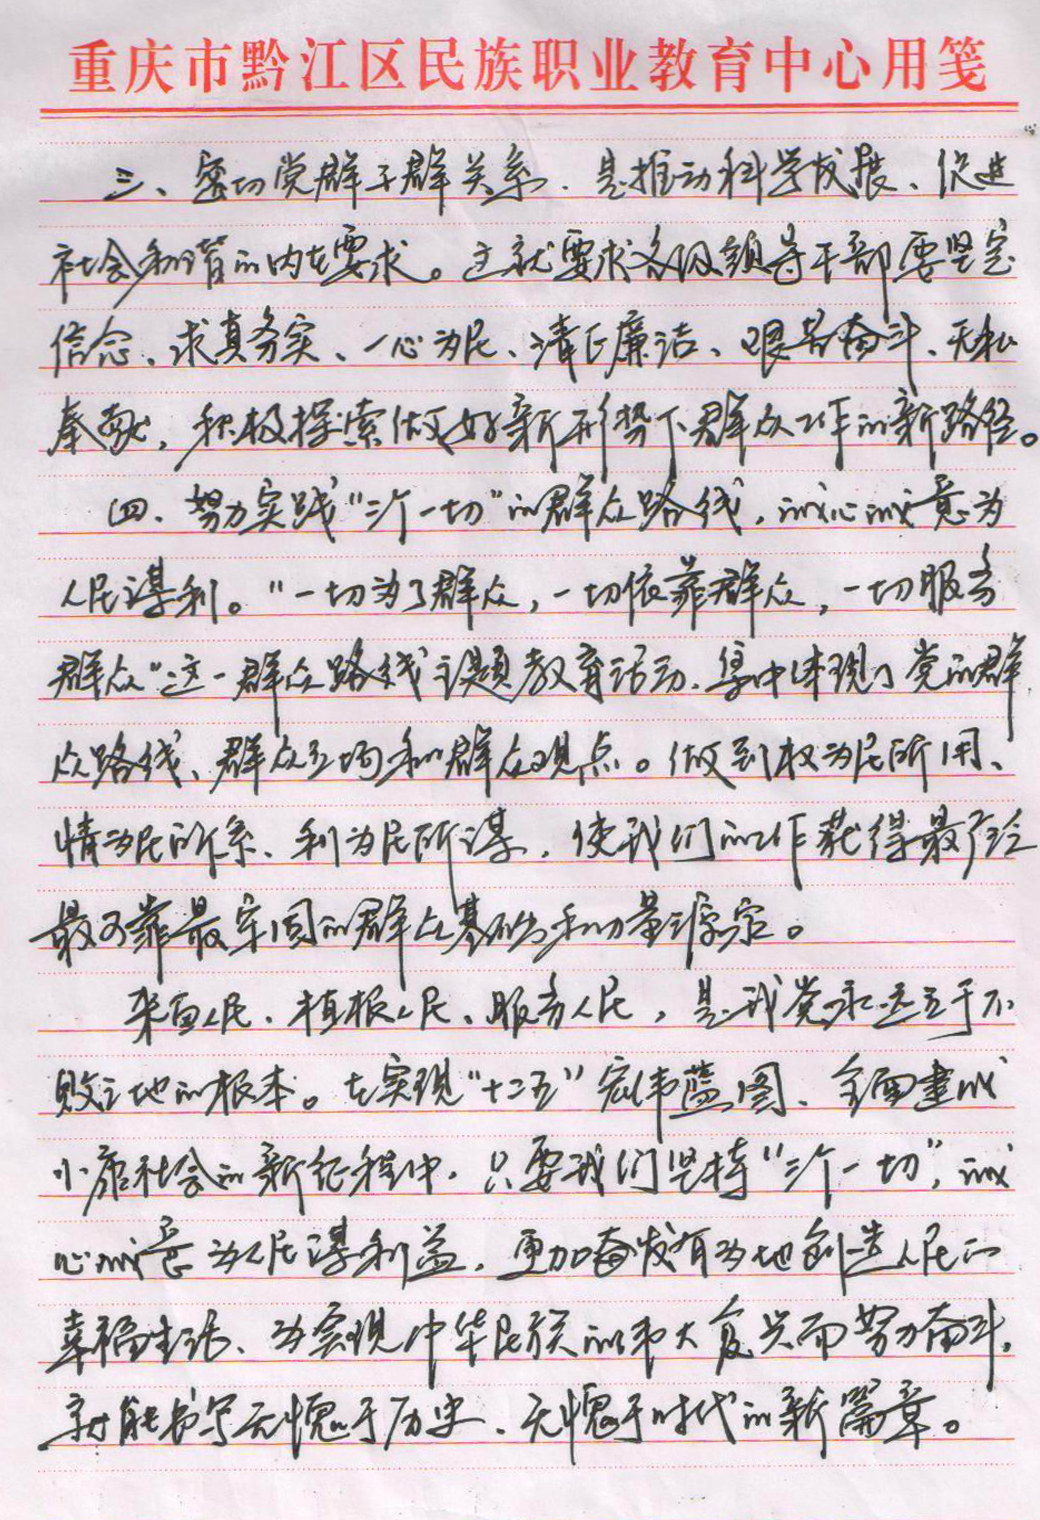 重庆市黔江区民族职业教育中心用笺
三、密切党群干群关系、是推动科学发展、促进
社会和谐的内在要求。这就要求各级领导干部要坚定
信念、求真务实、一心为民、清正廉洁、艰苦奋斗、无私
奉献，积极探索做好新形势下群众工作的新路径。
四、努力实践“三个一切”的群众路线，诚心诚意为
人民谋利。“一切为了群众，一切依靠群众，一切服务
群众”这一群众路线主题教育活动、集中体现了党的群
众路线、群众立场和群众观点。做到权为民所用、
情为民所系、利为民所谋，使我们的工作获得最广泛
最可靠最牢固的群众基础和力量源泉。
来自人民、植根人民、服务人民，是我党永远立于不
败之地的根本。在实现“十二五”宏伟蓝图、全面建成
小康社会的新征程中，只要我们坚持“三个一切”，诚
心诚意为人民谋利益，更加奋发有为地创造人民的
幸福生活、为实现中华民族的伟大复兴而努力奋斗，
就能书写无愧于历史、无愧于时代的新篇章。